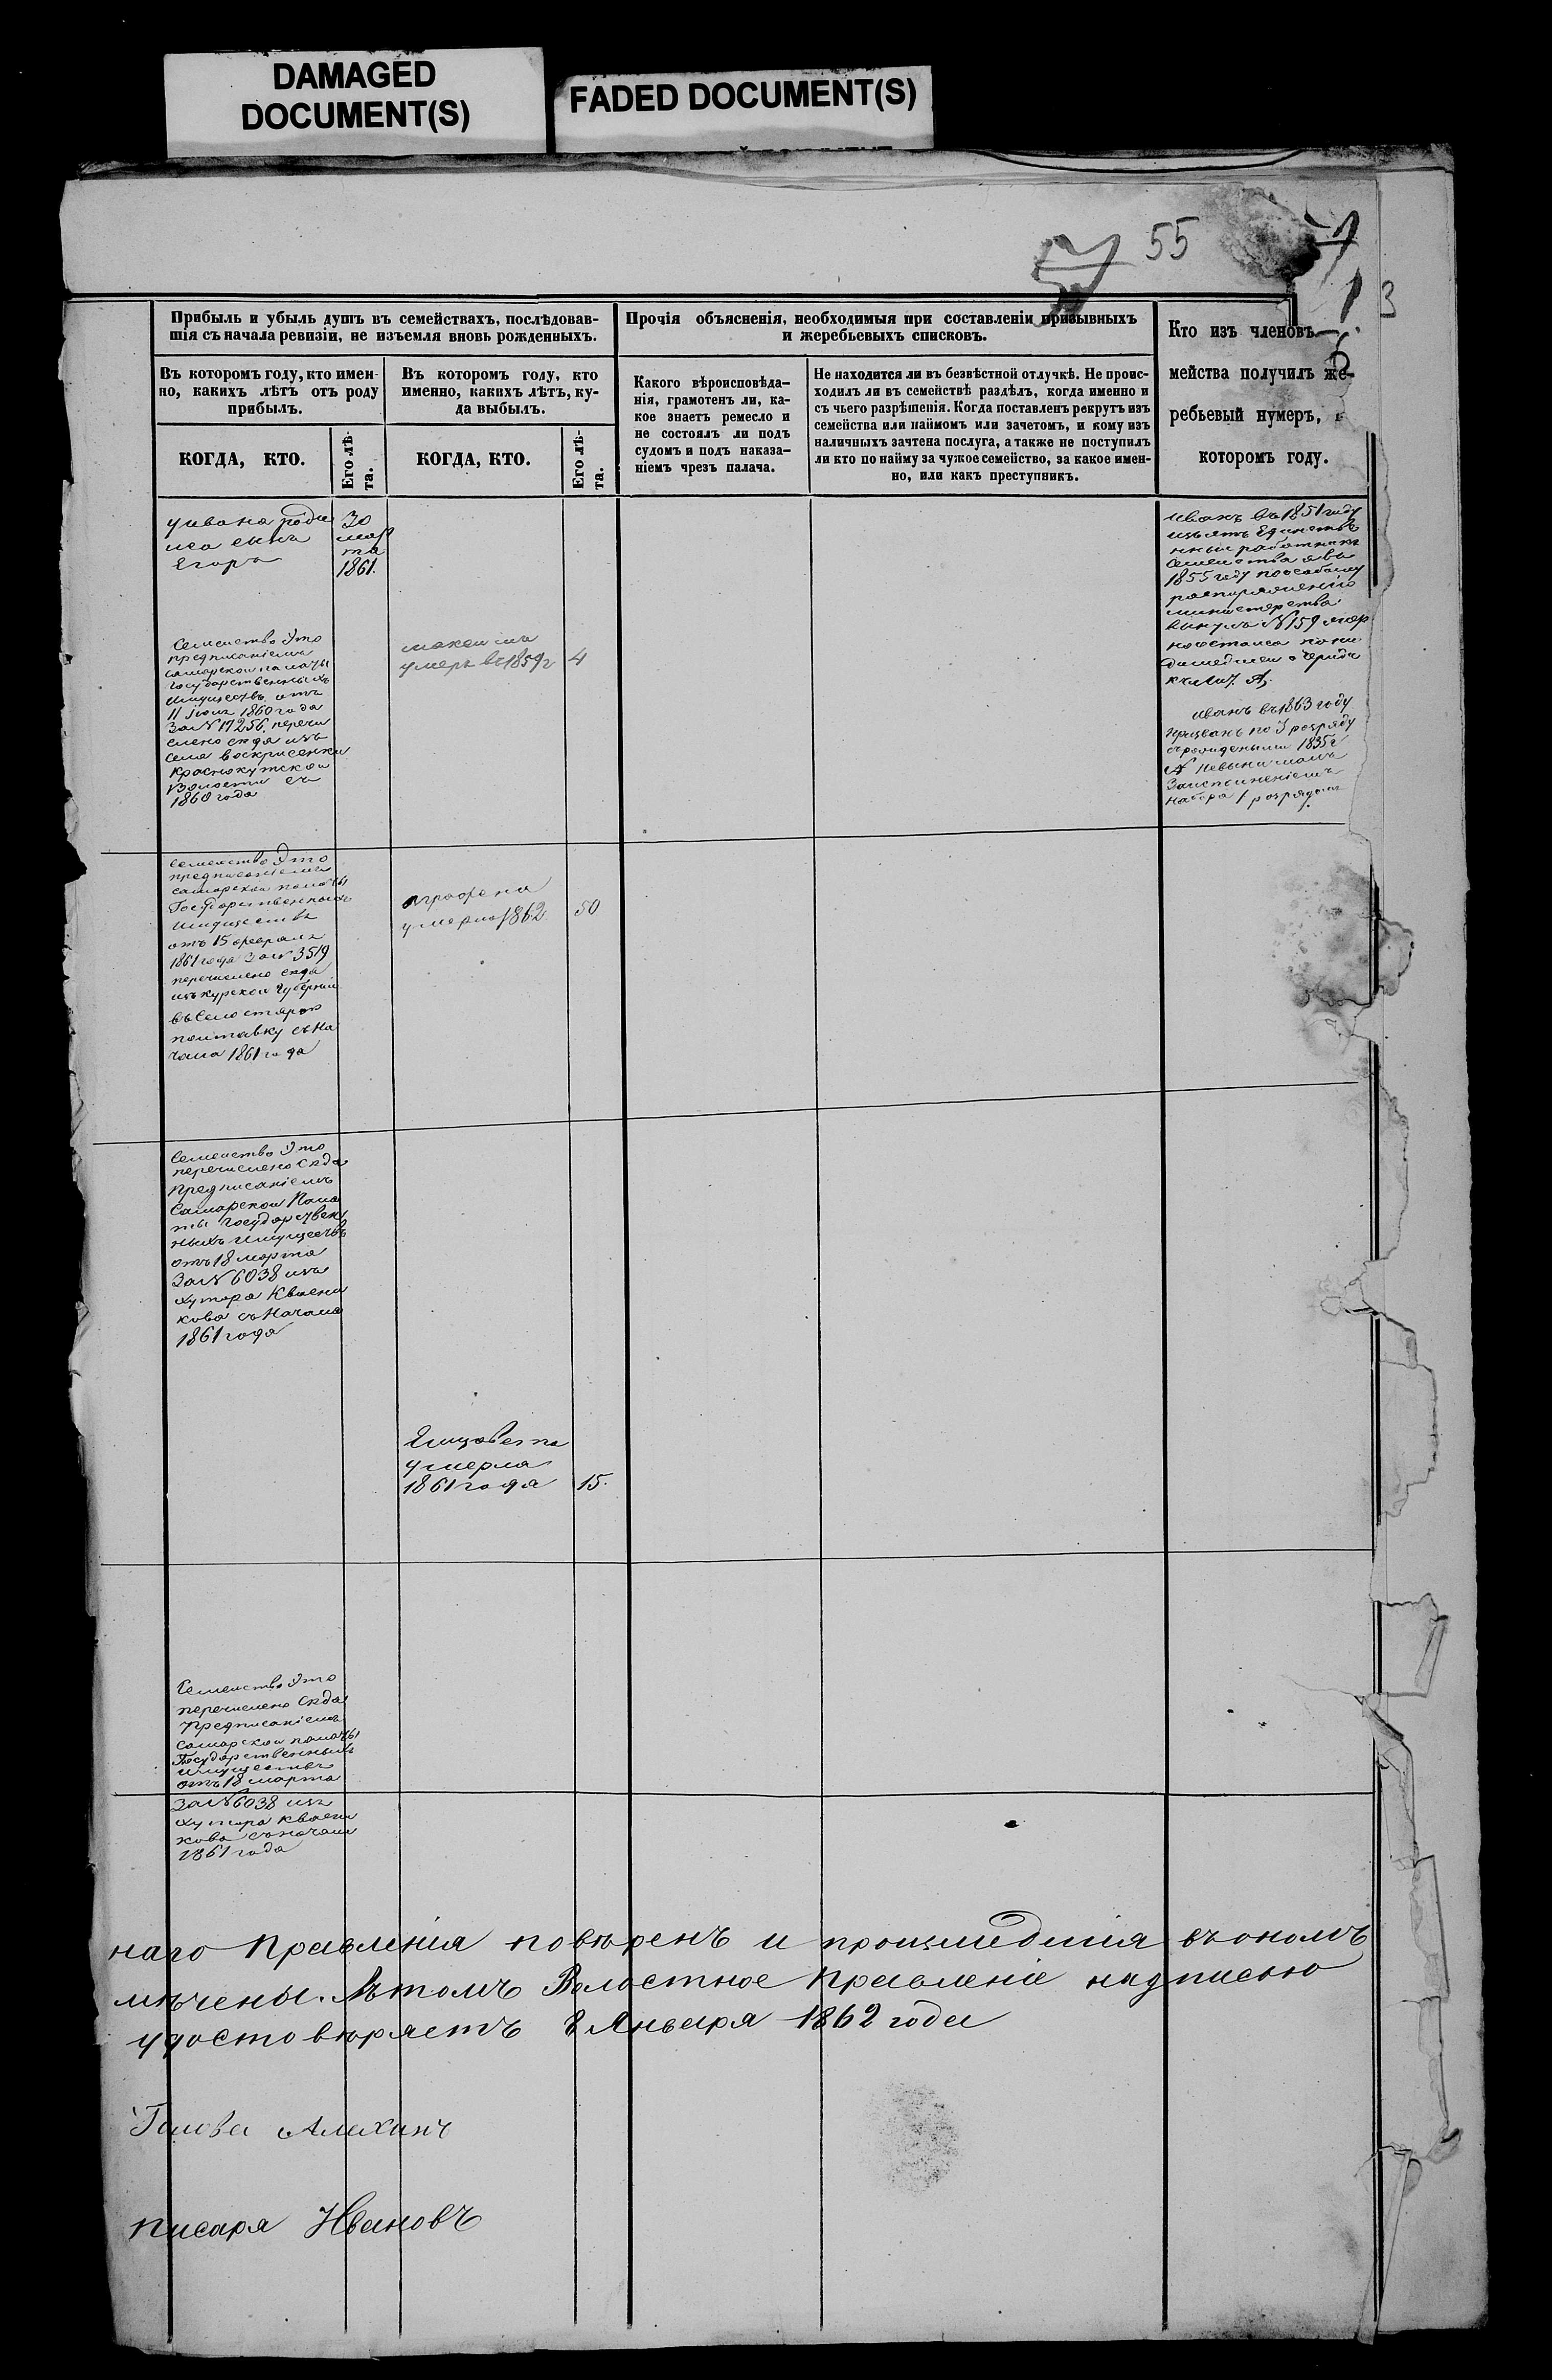 DAMAGED
DOCUMENT(S)
FADED DOCUMENT(S)
55
3
Прибыль и убыль душъ въ семействахъ, послѣдовав-
шія съ начала ревизіи, не изъемля вновь рожденныхъ.
Въ которомъ году, кто имен-
но, какихъ лѣтъ отъ роду
прибылъ.
КОГДА, КТО.
Его лѣ-
та.
Въ которомъ году, кто
именно, какихъ лѣтъ, ку-
да выбылъ.
КОГДА, КТО.
Его лѣ-
та.
Прочія объясненія, необходимыя при составленіи призывныхъ
и жеребьевыхъ списковъ.
Какого вѣроисповѣда-
нія, грамотенъ ли, ка-
кое знаетъ ремесло и
не состоялъ ли подъ
судомъ и подъ наказа-
ніемъ чрезъ палача.
Не находится ли въ безвѣстной отлучкѣ. Не проис-
ходилъ ли въ семействѣ раздѣлъ, когда именно и
съ чьего разрѣшенія. Когда поставленъ рекрутъ изъ
семейства или наймомъ или зачетомъ, и кому изъ
наличныхъ зачтена послуга, а также не поступилъ
ли кто по найму за чужое семейство, за какое имен-
но, или какъ преступникъ.
Кто изъ членовъ
мейства получилъ же-
ребьевый нумеръ,
которомъ году.
у ивана роди
лса сынъ
Егоръ
30
мар
та
1861.
Семейство Это
предписаніемъ
самарской палаты
государственныхъ
имуществъ отъ
11 Іюня 1860 года
За № 17256. перечи
слено сюда изъ
села воскрисенки
краснокутской
Волости съ
1860 года
максимъ
умеръ въ 1859 г
4
иванъ въ 1851 году
изъятъ Единстве
нный работникъ
Семейства а въ
1855 году по особому
распоряженію
министерства
вынулъ № 159
иванъ въ 1863 году
призванъ по 1 розряду
срожденными 1835 г
№ невынималъ
Заисполненіемъ
набора 1 розрядомъ
Семейство Это
предписаніемъ
самарской палаты
Государственныхъ
имуществъ
отъ 15 февраля
1861 года За № 3519
перечислено сюда
изъ курской Губерніи
въ село старую
полтавку съ на
чала 1861 года
аграфена
умерла 1862.
50
Семейство Это
перечислено Сюда
предписаніемъ
Самарской Пала
ты Государствен
ныхъ имуществъ
отъ 18 марта
За № 6038 изъ
хутора Квасни
кова съ Начала
1861 года
Елизавета
умерла
1861 года
15.
Семейство Это
перечислено Сюда
предписаніемъ
самарской палаты
Государственныхъ
имуществъ
отъ 18 марта
За № 6038 изъ
хутора Квасни
кова съ начала
1861 года
наго Правленія повѣренъ и происшедшія въ ономъ
мѣчены. Въ томъ Волостное Правленіе надписью
удостовѣряетъ 8 Января 1862 года
Голова Алехинъ
писаря Ивановъ